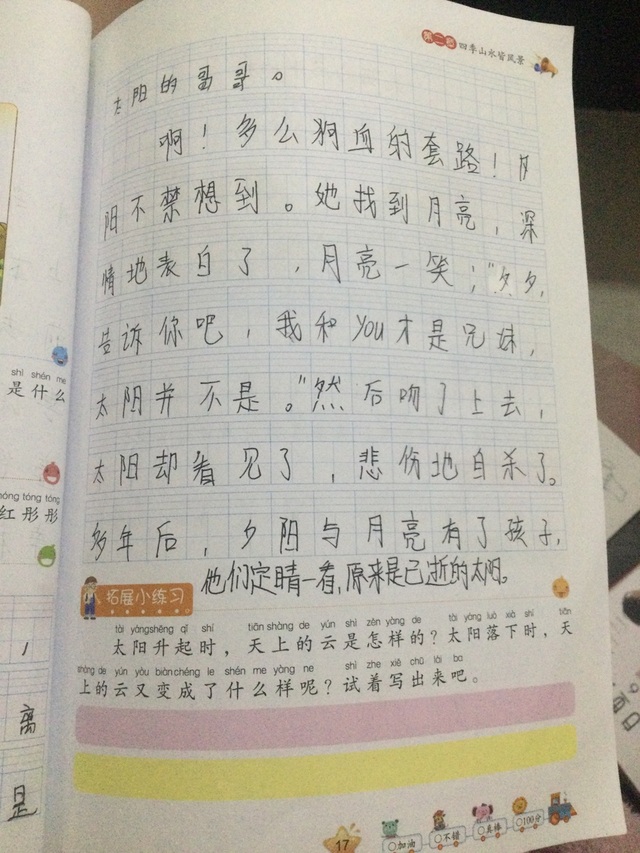 第二 四季山水皆风景
太阳的哥哥。
啊！多么狗血的套路！夕
阳不禁想到。她找到月亮，深
情地表白了，月亮一笑；“夕夕，
告诉你吧，我和you才是兄妹，
太阳并不是。”然后吻了上去，
太阳却看见了，悲伤地自杀了。
多年后，夕阳与月亮有了孩子，
他们定睛一看，原来是已逝的太阳。
拓展小练习
tài yángshēng qǐ shí tiān shàng de yún shì zěn yàng de tài yáng luò xià shí tiān
太阳升起时，天上的云是怎样的？太阳落下时，天
shàng de yún yòu biàn chéng le shén me yàng ne shì zhe xiě chū lái ba
上的云又变成了什么样呢？试着写出来吧。
shì shén me
是什么
hóng tóng tóng
红彤彤
，
离
是
17
加油 不错 真棒 100分